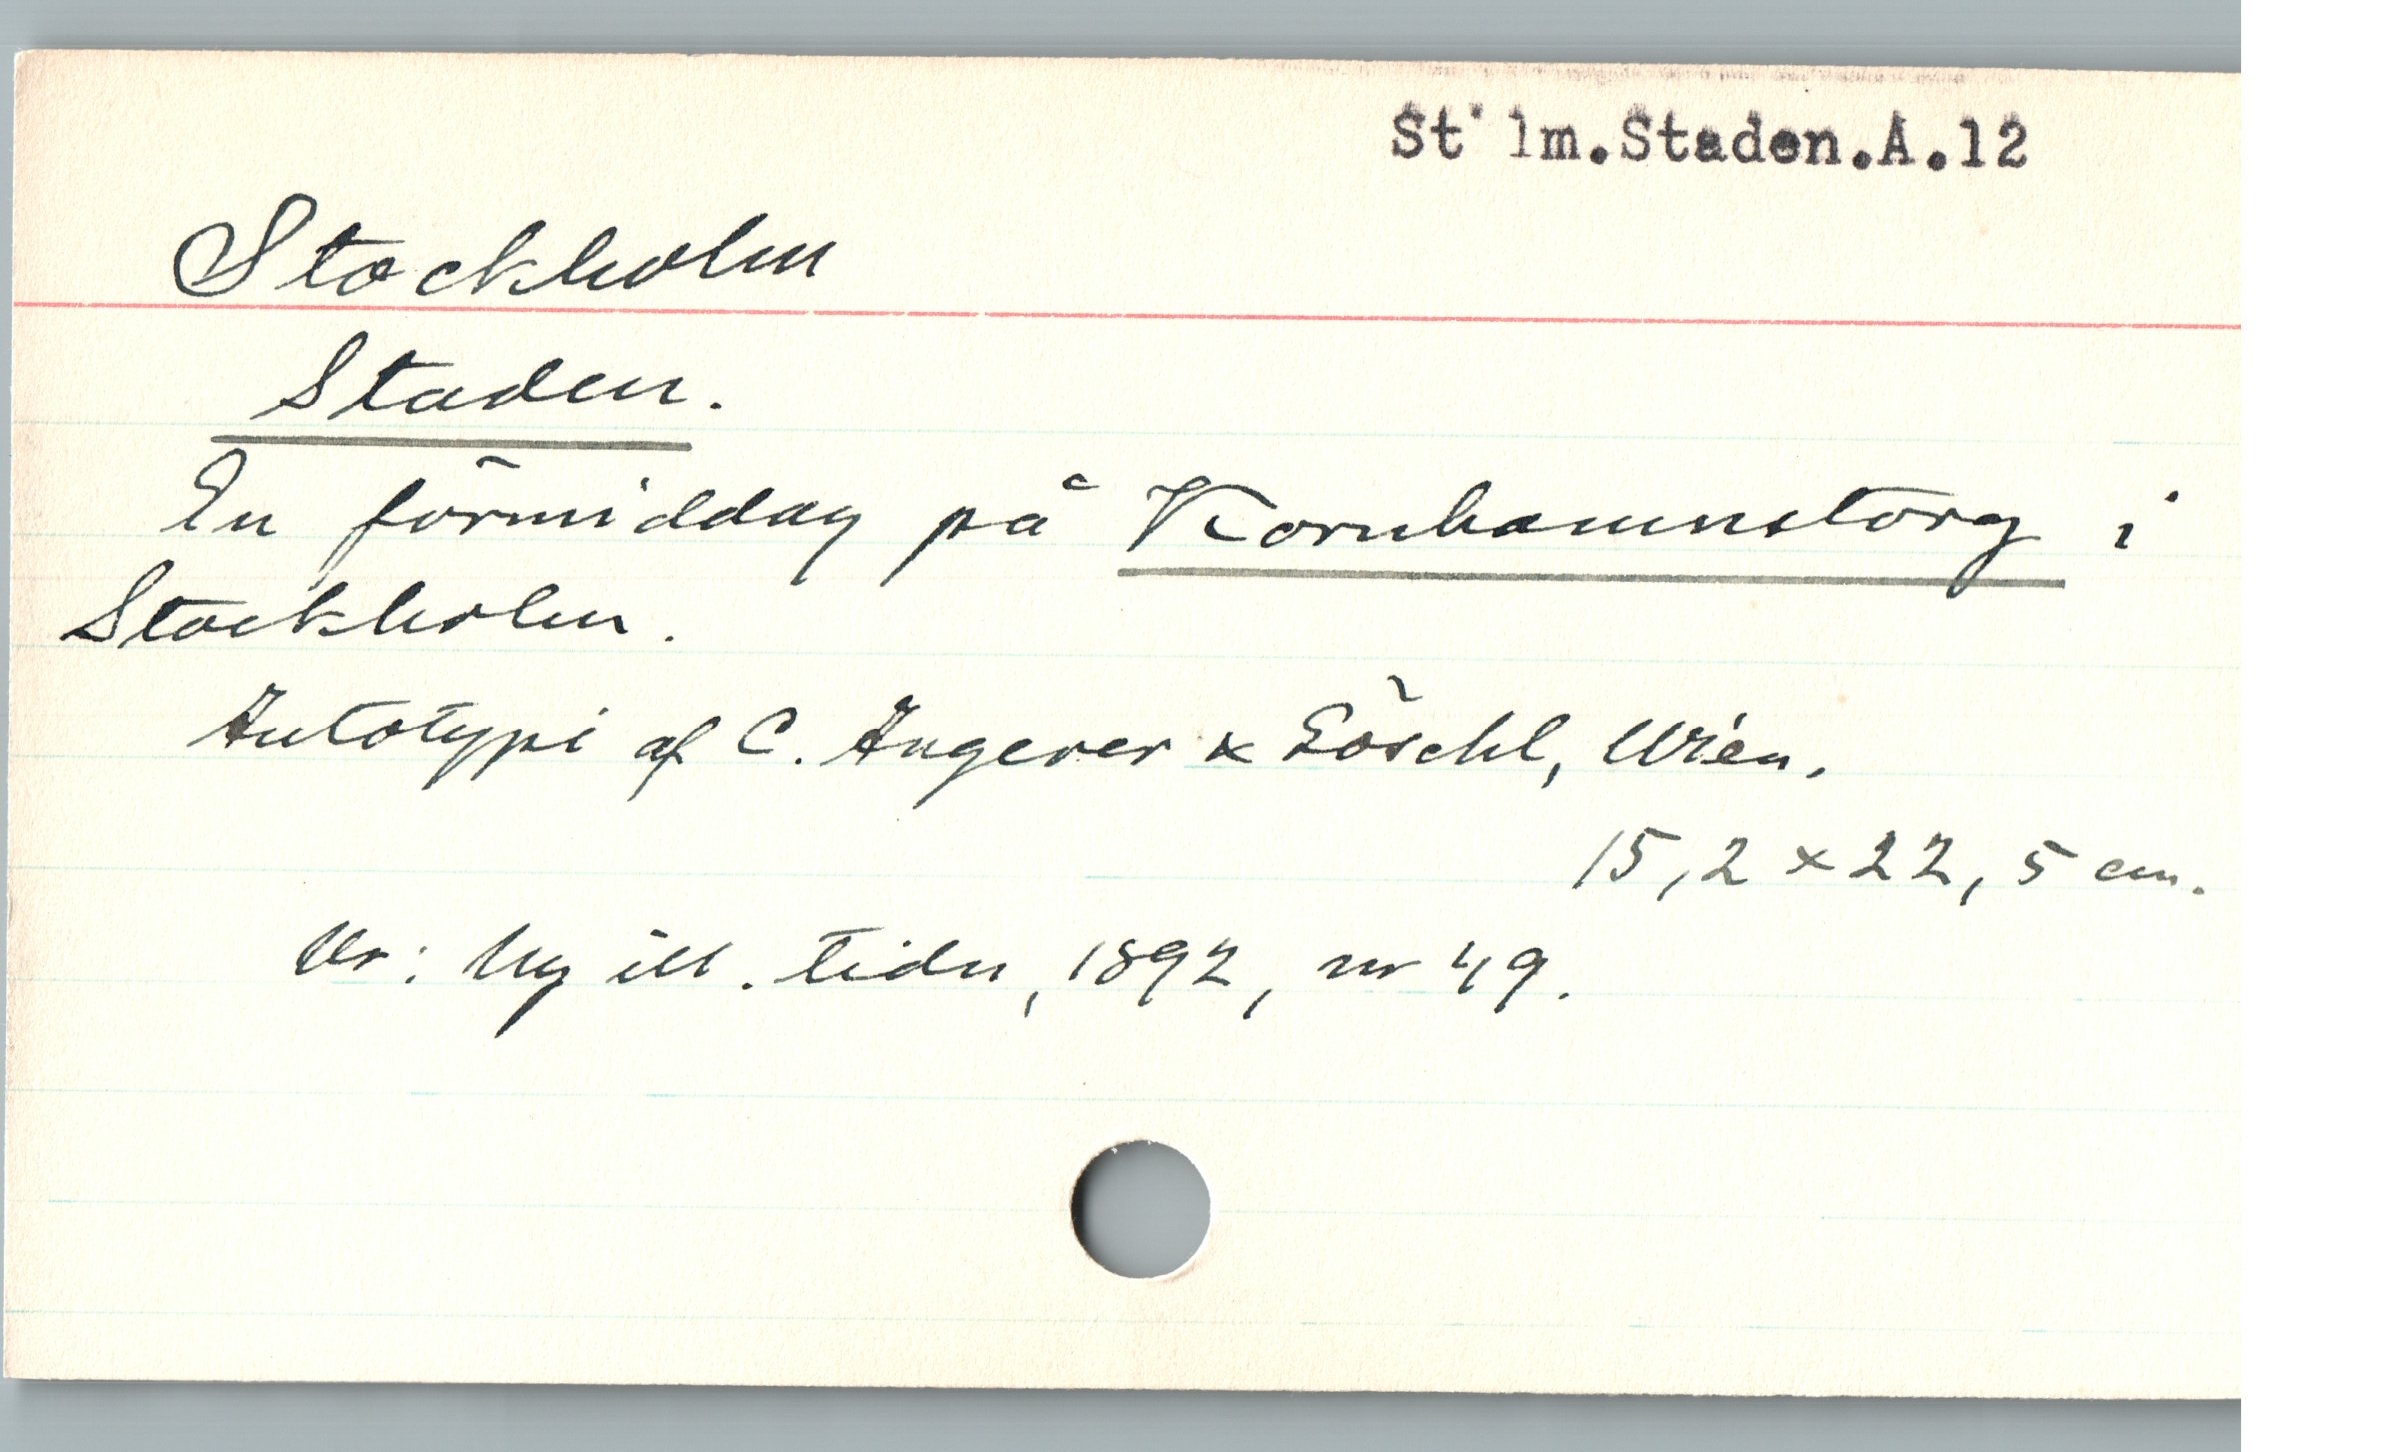 St'lm.Staden.A.12
Stockholm
Staden.
En förmiddag på Kornhamnstorg i
Stockholm.
Autotypi af C. Angerer & Göschl, Wien.
15,2 x 22,5 cm.
Ur: Ny ill. tidn, 1892, nr 49.